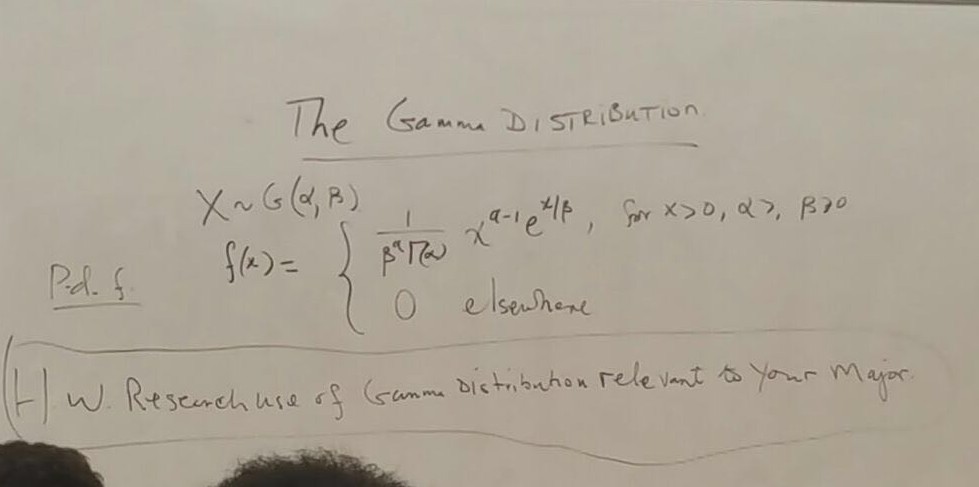 The Gamma DISTRIBUTION.
X ~ G(α, β)
f(x) = { 1/(β^α Γ(α)) x^(α-1) e^(x/β), for x>0, α>, β>0
P.d.f.
0 elsewhere
HW. Research use of Gamma Distribution relevant to Your Major.